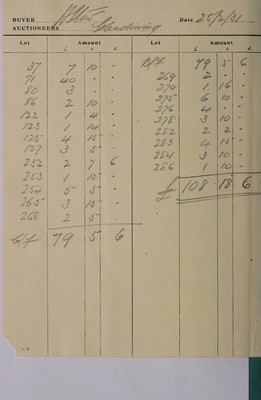 BUYER
AUCTIONEERS
Date 25/2/31
Lot Amount Lot Amount
£ s d £ s d
37 7 10 -
71 40 - -
80 3 - -
86 2 10 -
122 1 4 -
123 1 14 -
125 4 15 -
127 3 5 -
252 2 7 6
253 1 15 -
254 5 5 -
265 3 15 -
268 2 5 -
C/f 79 5 6
B/f 79 5 6
269 2 - -
270 1 16 -
275 6 10 -
276 4 - -
278 3 10 -
282 2 2 -
283 4 15 -
284 3 10 -
286 1 10 -
£ 108 - 18 6